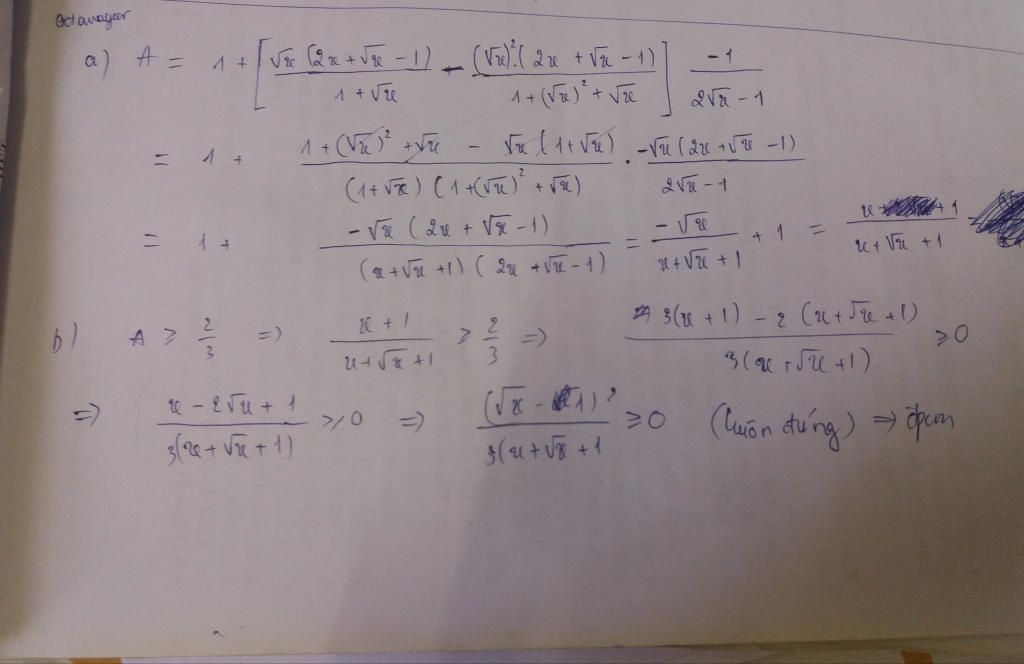 Octawageer
a) A = 1 + [ √x (2x + √x − 1) / 1 + √x − (√x)².(2x + √x − 1) / 1 + (√x)² + √x ] −1 / 2√x − 1
= 1 + 1 + (√x)² + √x − √x (1 + √x) / (1 + √x) (1 + (√x)² + √x) . −√x (2x + √x − 1) / 2√x − 1
= 1 + −√x (2x + √x − 1) / (x + √x + 1) (2x + √x − 1) = −√x / x + √x + 1 + 1 = x + 1 / x + √x + 1
b) A ≥ 2/3 => x + 1 / x + √x + 1 ≥ 2/3 => 3(x + 1) − 2 (x + √x + 1) / 3(x + √x + 1) ≥ 0
=> x − 2√x + 1 / 3(x + √x + 1) ≥ 0 => (√x − 1)² / 3(x + √x + 1 ≥ 0 (luôn đúng) => đpcm